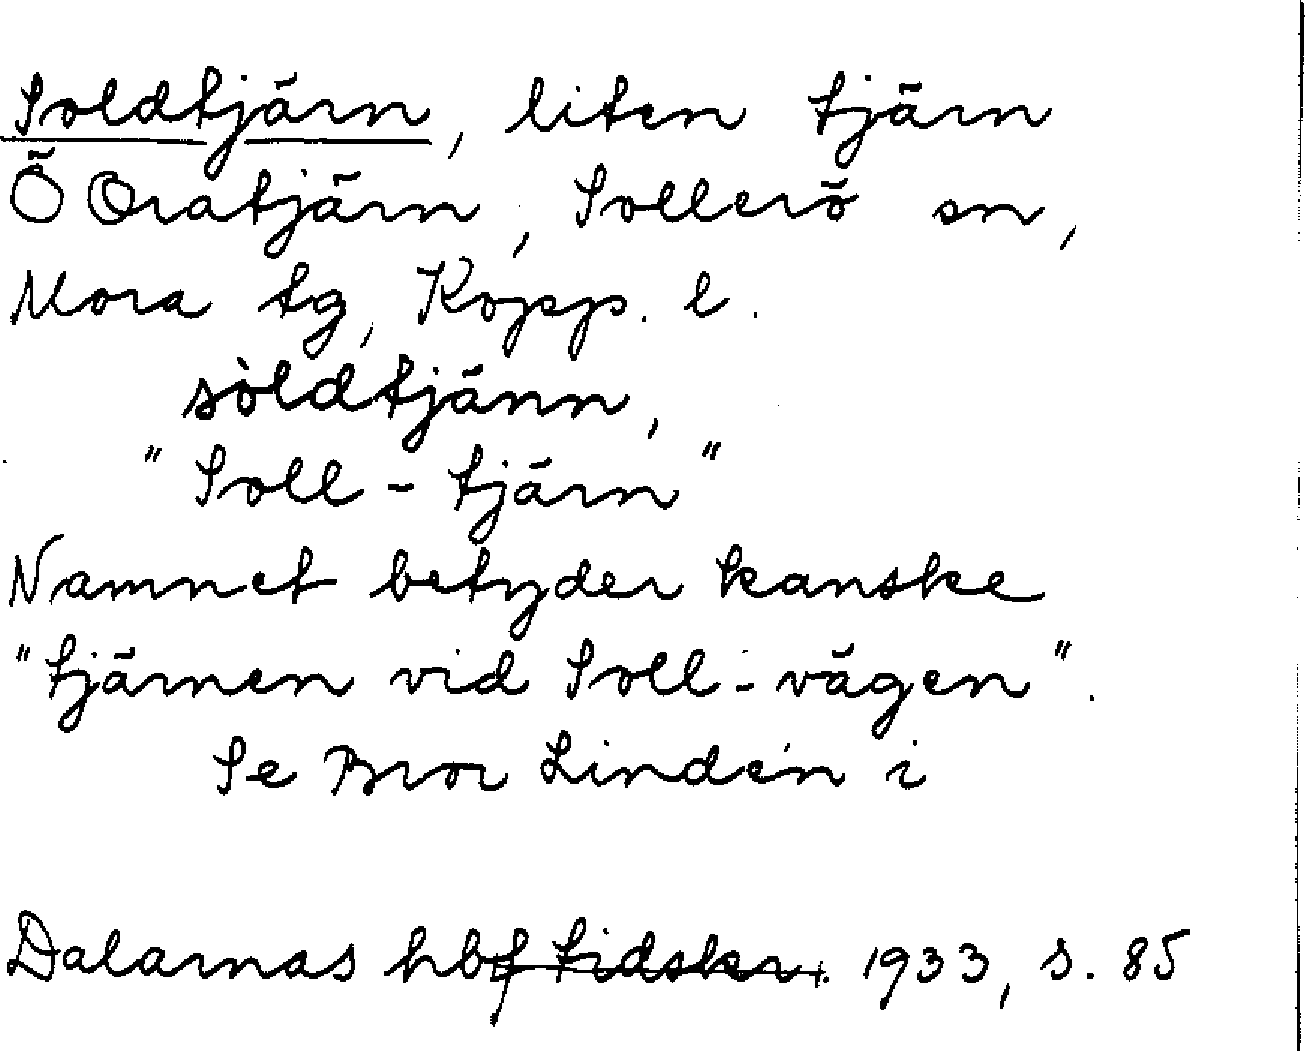 Soldtjärn, liten tjärn
Ö Oratjärn, Sollerö sn,
Mora tg, Kopp. l.
sòldtjänn,
"Soll-tjärn"
Namnet betyder kanske
"tjärnen vid Soll-vägen".
Se Bror Lindén i
Dalarnas hbf tidskr. 1933, s. 85